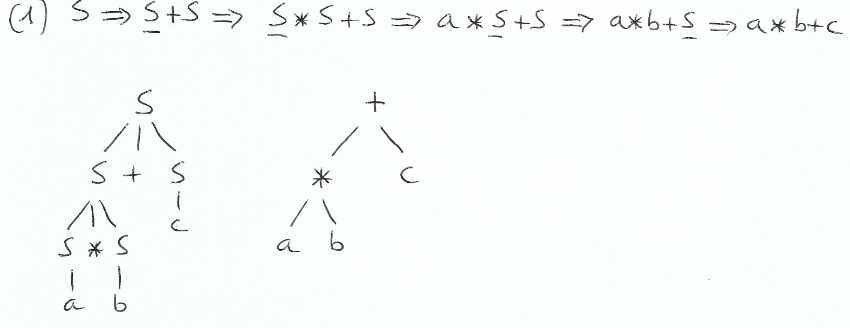 (1) S ⇒ S+S ⇒ S*S+S ⇒ a*S+S ⇒ a*b+S ⇒ a*b+c
S +
S + S * c
c
S * S a b
a b